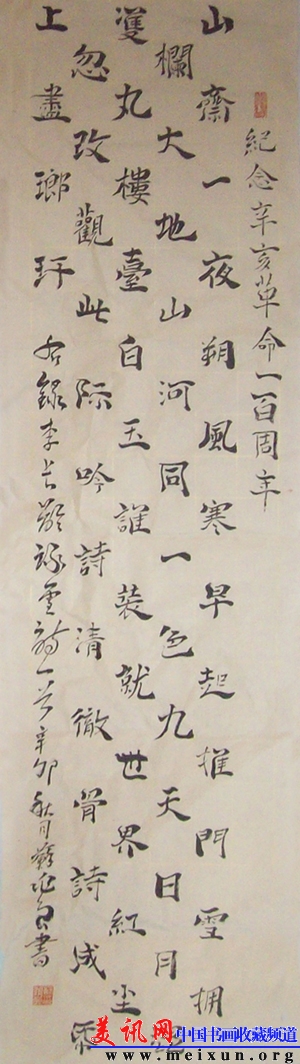 紀念辛亥革命一百周年
山齋一夜朔風寒早起推門雪拥
欄大地山河同一色九天日月
雙丸樓臺白玉誰裝就世界紅尘
忽改觀此际吟詩清徹骨詩成
上盡瑯玕 右錄李詠雪詩一首辛卯秋月書
美讯网 中国书画收藏频道
www.meixun.org